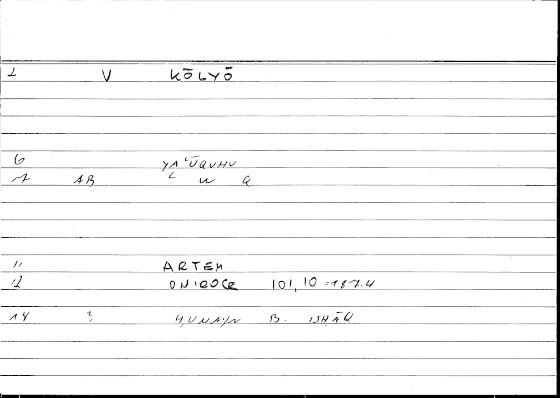 1 V KŌLYŌ
6 YAʿŪQUHU
7 AR ʿ W Q
11 ARTEM
12 ONIROCR 101,10 = 187.4
14 ? ḤUNAYN B. ISḤĀQ